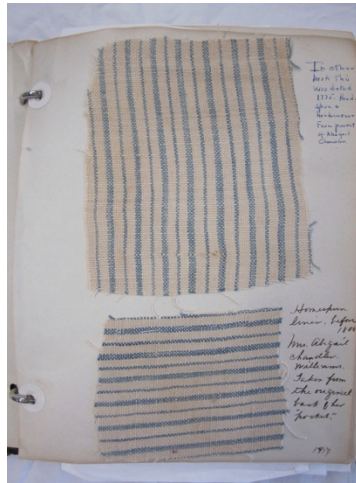 In other
book this
was dated
1775. Made
upon a
Farm
of Abigail
Chandler
Homespun
linen, before
1800
Mrs. Abigail
Chandler
Williams.
Taken from
the original
back of her
"pocket."
1937